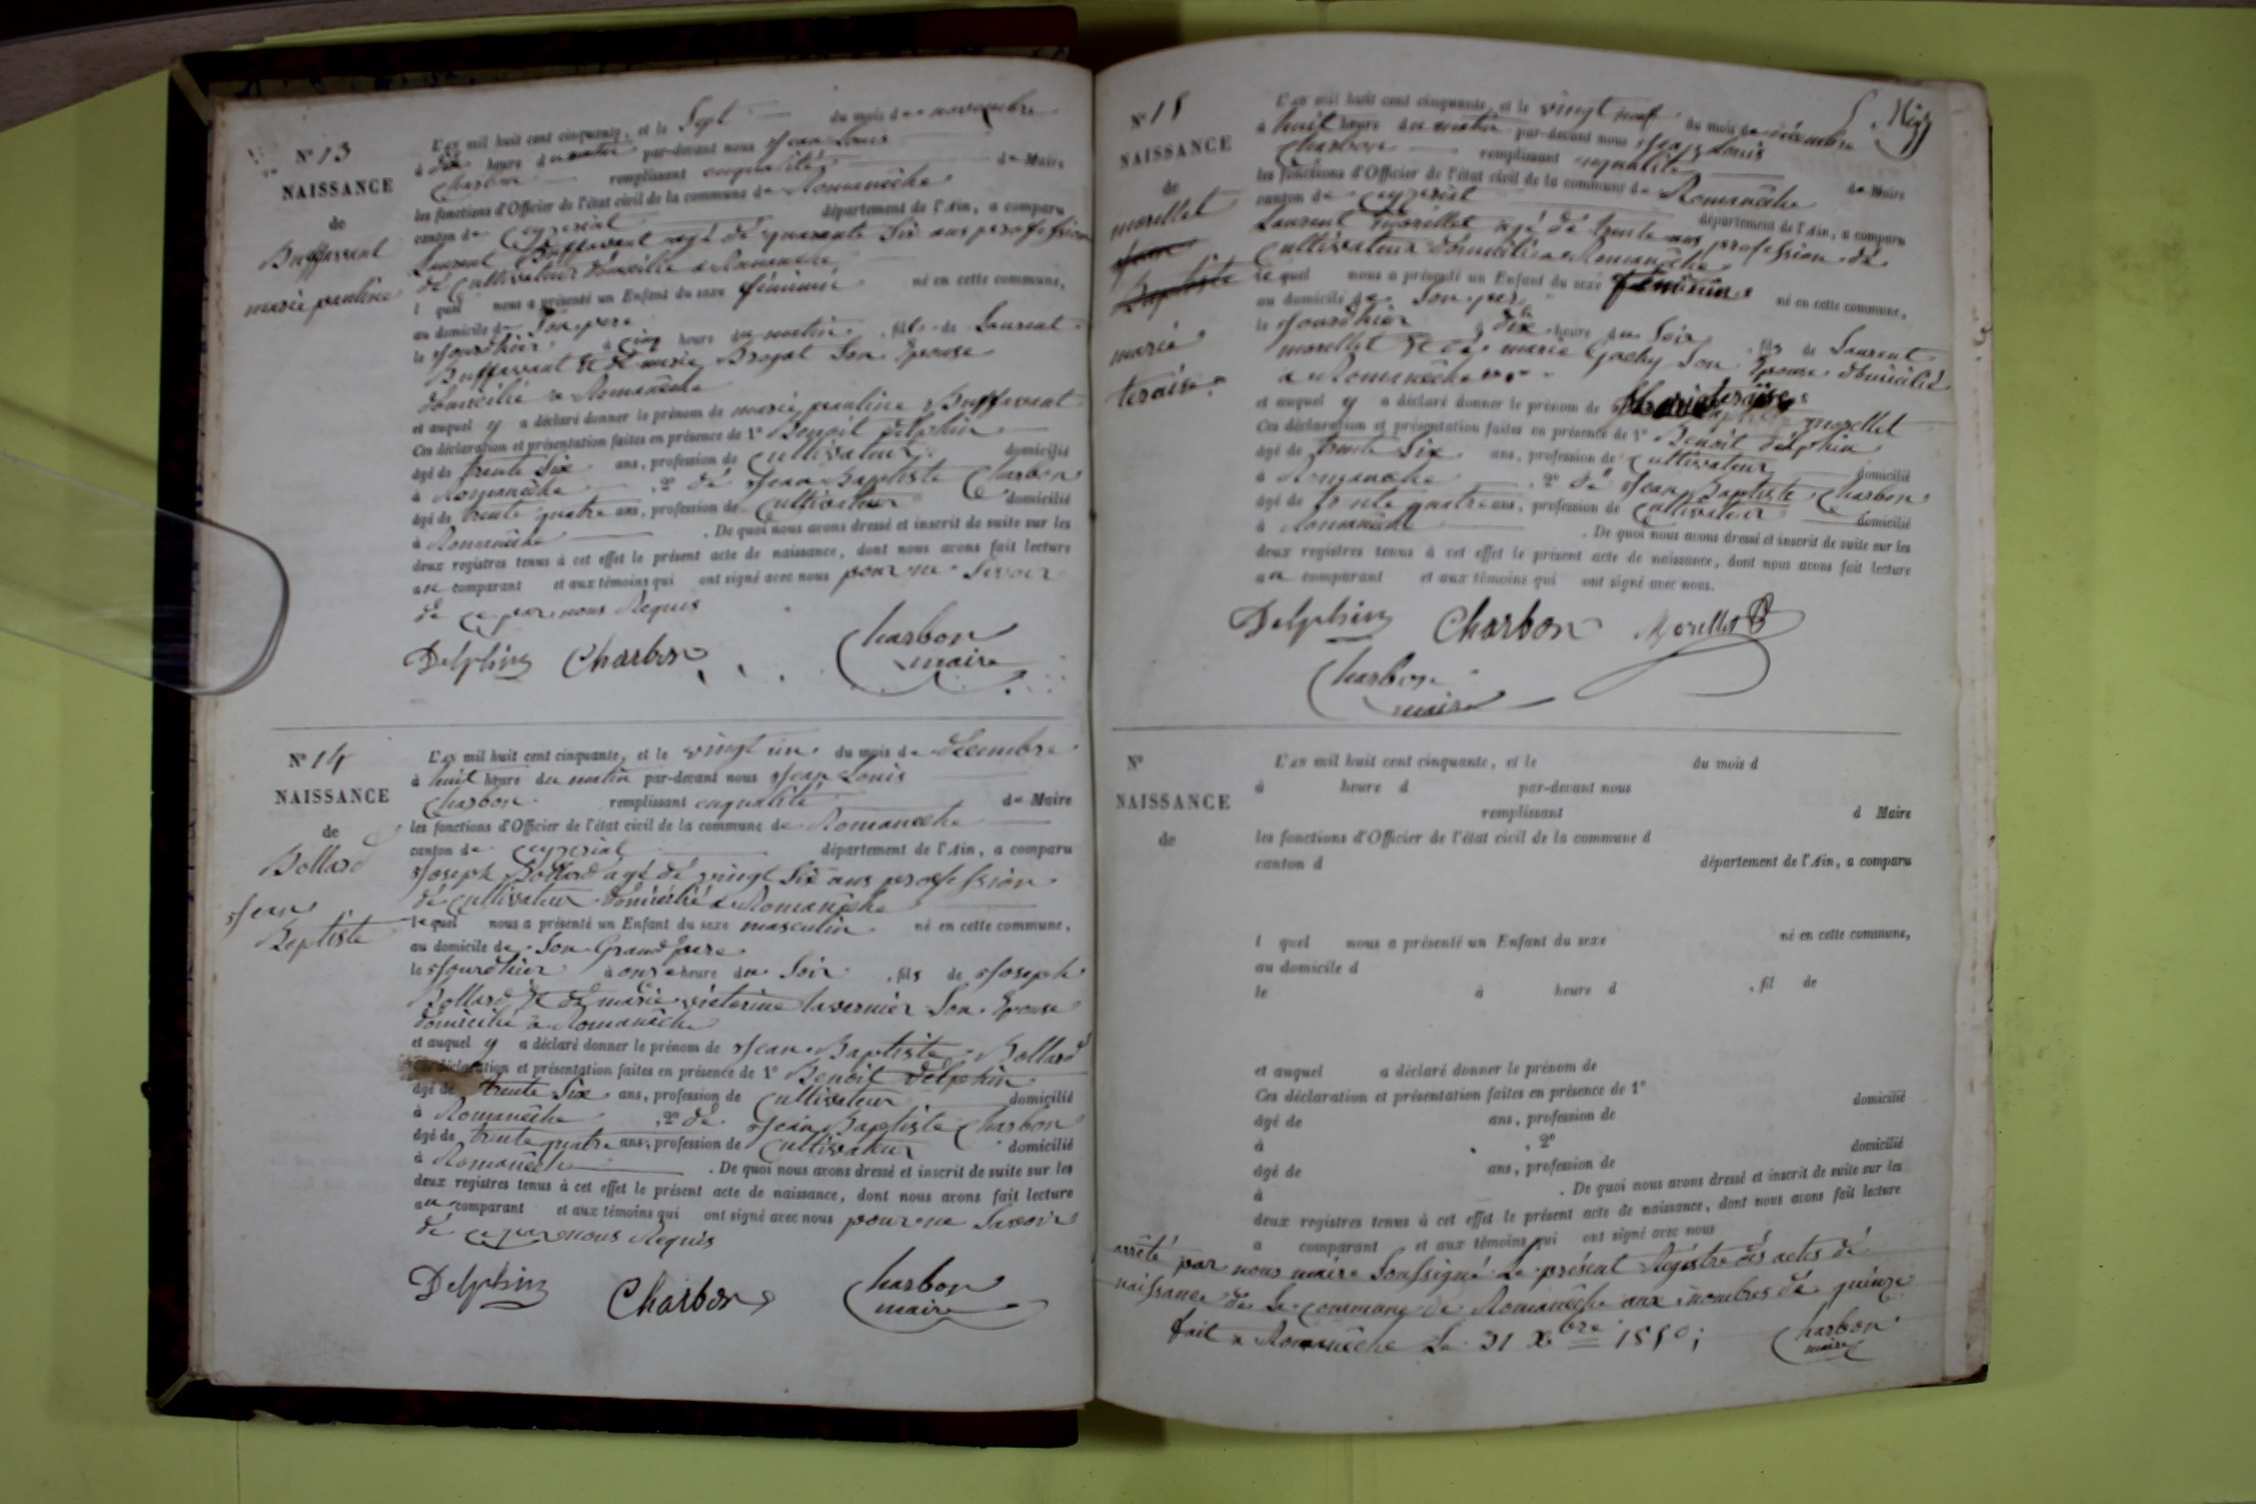 N° 13
NAISSANCE
de
Buffavent
marie pauline
L'an mil huit cent cinquante, et le Sept du mois de novembre
à dix heure du matin par-devant nous Jean Louis
Charbon remplissant enqualité de Maire
les fonctions d'Officier de l'état civil de la commune de Romanèche
canton de Ceyzeriat département de l'Ain, a comparu
Laurent Buffavent agé dé quarante Six ans profession
dé Cultivateur domicilié a Romanèche
l quel nous a présenté un Enfant du sexe féminin né en cette commune,
au domicile de Son pere
le Jourdhier à cinq heure du matin, fils de Laurent
Buffavent et de marie Brogat Son Epouse
domicilié a Romanèche
et auquel y a déclaré donner le prénom de marie pauline Buffavent
Ces déclaration et présentation faites en présence de 1° Benoit delphin
âgé de trente Six ans, profession de Cultivateur domicilié
à Romanèche, 2° dé Jean Baptiste Charbon
âgé de trente quatre ans, profession de Cultivateur domicilié
à Romanèche. De quoi nous avons dressé et inscrit de suite sur les
deux registres tenus à cet effet le présent acte de naissance, dont nous avons fait lecture
au comparant et aux témoins qui ont signé avec nous pour ne Savoir
de ce par nous Requis
Delphin Charbon Charbon
maire
N° 14
NAISSANCE
de
Bollard
Jean
Baptiste
L'an mil huit cent cinquante, et le vingt un du mois de décembre
à huit heure du matin par-devant nous Jean Louis
Charbon remplissant enqualité de Maire
les fonctions d'Officier de l'état civil de la commune de Romanèche
canton de Ceyzeriat département de l'Ain, a comparu
Joseph Bollard agé dé vingt Six ans profession
dé Cultivateur domicilié a Romanèche
le quel nous a présenté un Enfant du sexe masculin né en cette commune,
au domicile de Son Grand pere
le Jourdhier à onze heure du Soir, fils de Joseph
Bollard et dé marie victorine tavernier Son Epouse
domicilié a Romanèche
et auquel y a déclaré donner le prénom de Jean Baptiste Bollard
Ces déclaration et présentation faites en présence de 1° Benoit delphin
âgé de trente Six ans, profession de Cultivateur domicilié
à Romanèche, 2° de Jean Baptiste Charbon
âgé de trente quatre ans, profession de Cultivateur domicilié
à Romanèche. De quoi nous avons dressé et inscrit de suite sur les
deux registres tenus à cet effet le présent acte de naissance, dont nous avons fait lecture
au comparant et aux témoins qui ont signé avec nous pour ne Savoir
dé ce par nous Requis
Delphin Charbon Charbon
maire
N° 15
NAISSANCE
de
morellet
Jean
Baptiste
marie
teraise
L'an mil huit cent cinquante, et le vingt neuf du mois de décembre
à huit heure du matin par-devant nous Jean Louis
Charbon remplissant enqualité de Maire
les fonctions d'Officier de l'état civil de la commune de Romanèche
canton de Ceyzeriat département de l'Ain, a comparu
Laurent morellet agé dé trente ans profession dé
Cultivateur domicilié a Romanèche
le quel nous a présenté un Enfant du sexe féminin né en cette commune,
au domicile de Son pere
le Jourdhier à dix heure du Soir, fils de Laurent
morellet et dé marie Gachy Son Epouse domicilié
a Romanèche
et auquel y a déclaré donner le prénom de Marie teraise
morellet
Ces déclaration et présentation faites en présence de 1° Benoit delphin
âgé de trente Six ans, profession de Cultivateur domicilié
à Romanèche, 2° dé Jean Baptiste Charbon
âgé de trente quatre ans, profession de Cultivateur domicilié
à Romanèche. De quoi nous avons dressé et inscrit de suite sur les
deux registres tenus à cet effet le présent acte de naissance, dont nous avons fait lecture
au comparant et aux témoins qui ont signé avec nous.
Delphin Charbon Morellet
Charbon
maire
N°
NAISSANCE
de
L'an mil huit cent cinquante, et le du mois d
à heure d par-devant nous
remplissant d Maire
les fonctions d'Officier de l'état civil de la commune d
canton d département de l'Ain, a comparu
l quel nous a présenté un Enfant du sexe né en cette commune,
au domicile d
le à heure d, fil de
et auquel a déclaré donner le prénom de
Ces déclaration et présentation faites en présence de 1°
âgé de ans, profession de domicilié
à, 2°
âgé de ans, profession de domicilié
à. De quoi nous avons dressé et inscrit de suite sur les
deux registres tenus à cet effet le présent acte de naissance, dont nous avons fait lecture
a comparant et aux témoins qui ont signé avec nous
arrêté par nous maire Soussigné Le présent Régistre dés actes dé
naissance de La commune de Romanèche aux nombres dé quinze
fait a Romanèche Le 31 Xbre 1850;
Charbon
maire